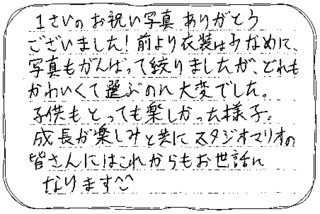 1さいの お祝い写真 ありがとう
ございました! 前より衣装は少なめに、
写真もがんばって絞りましたが、どれも
かわいくて 選ぶのが大変でした。
子供も とっても 楽しかった様子。
成長が楽しみと共に スタジオマリオの
皆さんにはこれからもお世話に
なります^^